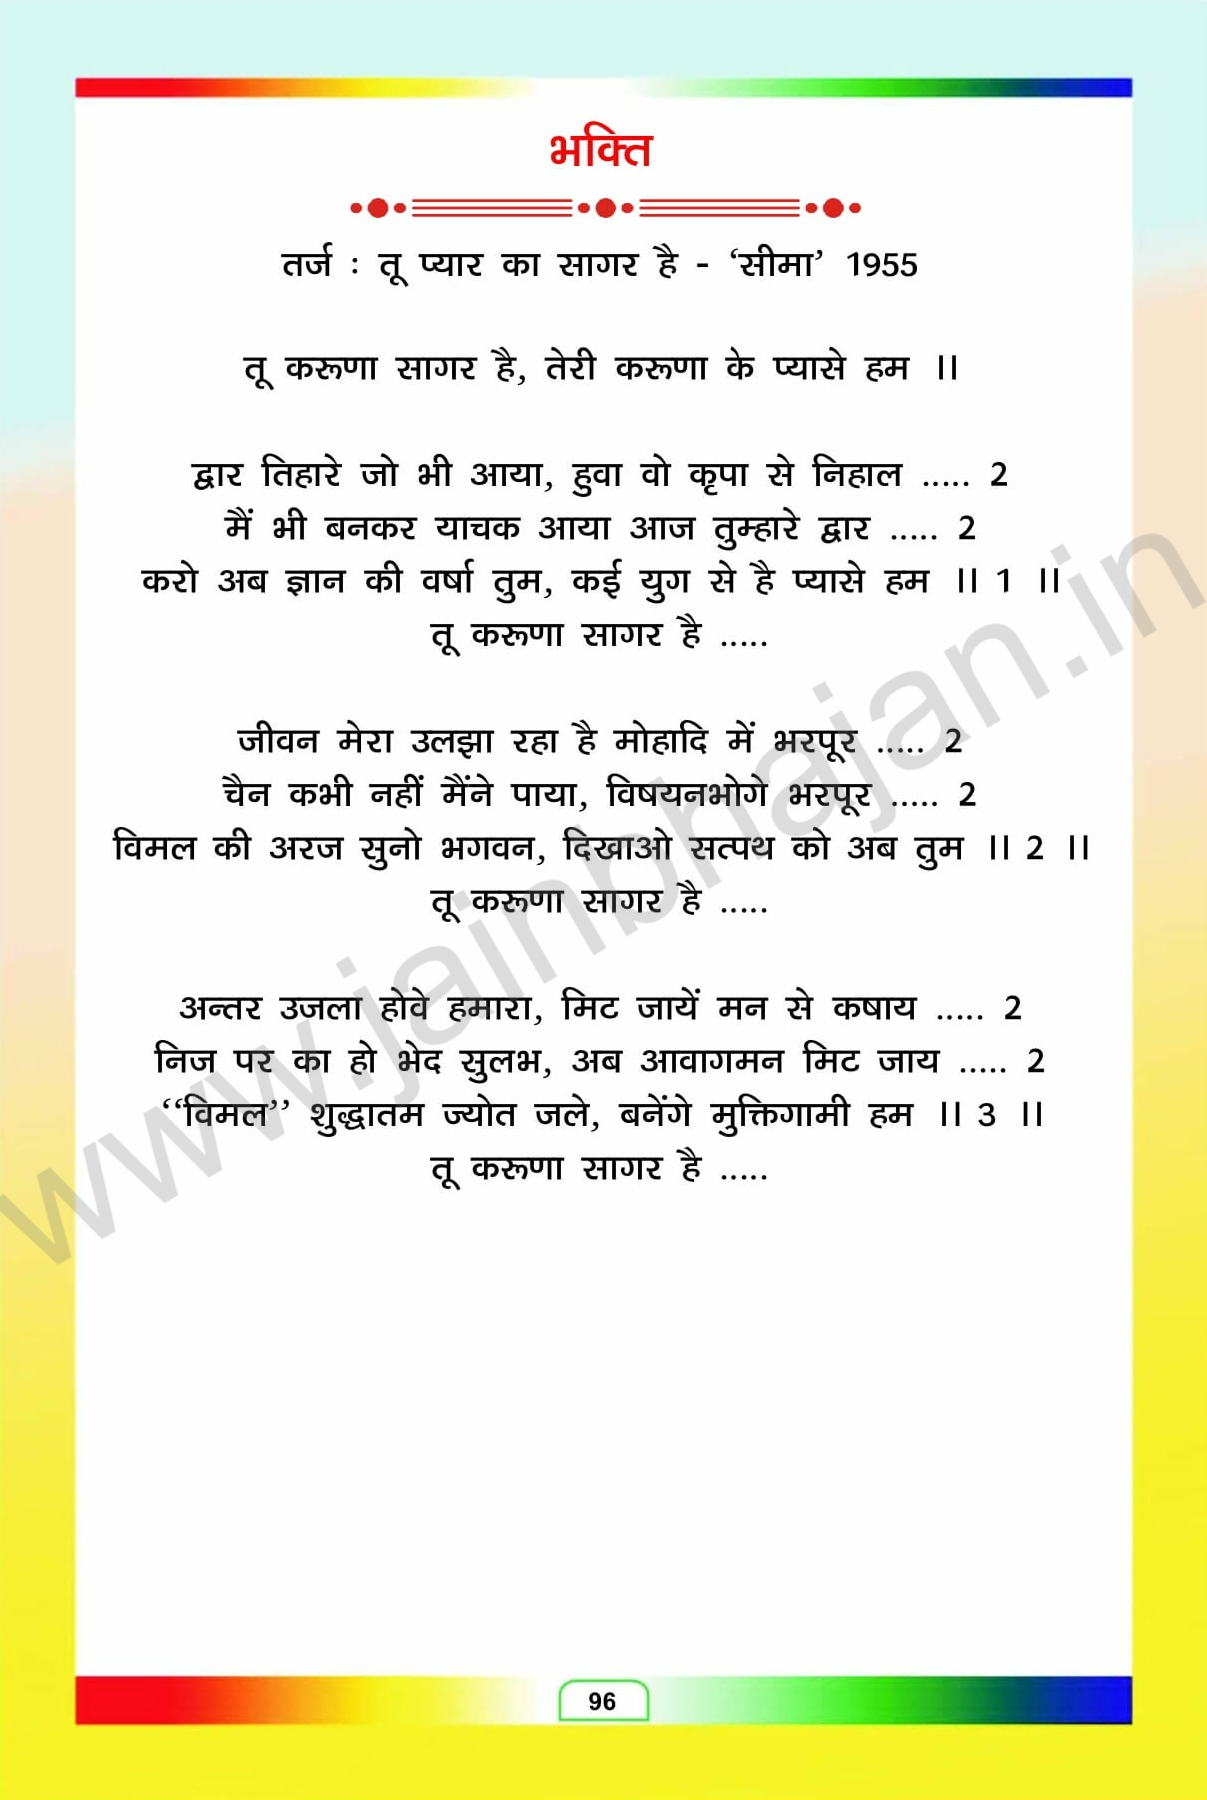 भक्ति
तर्ज : तू प्यार का सागर है - ‘सीमा’ 1955
तू करूणा सागर है, तेरी करूणा के प्यासे हम ।।
द्वार तिहारे जो भी आया, हुवा वो कृपा से निहाल ..... 2
मैं भी बनकर याचक आया आज तुम्हारे द्वार ..... 2
करो अब ज्ञान की वर्षा तुम, कई युग से है प्यासे हम ।। 1 ।।
तू करूणा सागर है .....
जीवन मेरा उलझा रहा है मोहादि में भरपूर ..... 2
चैन कभी नहीं मैंने पाया, विषयनभोगे भरपूर ..... 2
विमल की अरज सुनो भगवन, दिखाओ सत्पथ को अब तुम ।। 2 ।।
तू करूणा सागर है .....
अन्तर उजला होवे हमारा, मिट जायें मन से कषाय ..... 2
निज पर का हो भेद सुलभ, अब आवागमन मिट जाय ..... 2
‘‘विमल’’ शुद्धातम ज्योत जले, बनेंगे मुक्तिगामी हम ।। 3 ।।
तू करूणा सागर है .....
www.jainbhajan.in
96